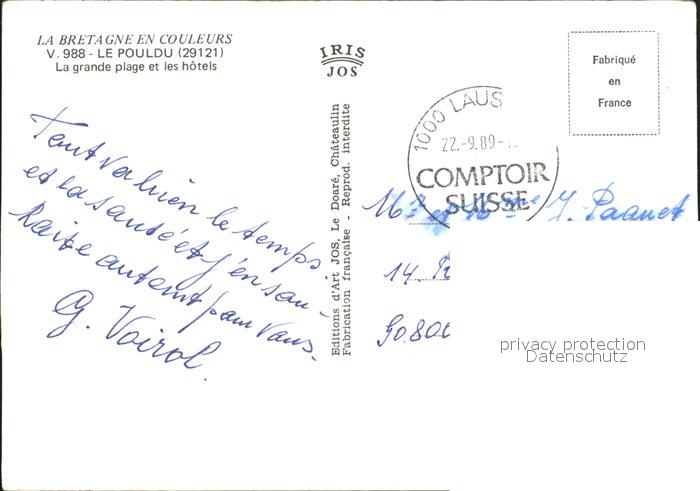 LA BRETAGNE EN COULEURS
V. 988 - LE POULDU (29121)
La grande plage et les hôtels
IRIS
JOS
Fabriqué
en
France
1000 LAUS
22.-9.89-
COMPTOIR
SUISSE
Tout va bien le temps
et la santé et j'en sou-
haite autant pour vous.
G. Voirol.
Editions d'Art JOS, Le Doaré, Châteaulin
Fabrication française - Reprod. interdite
Mr et Mme J. Paquet
14
90.800
privacy protection
Datenschutz